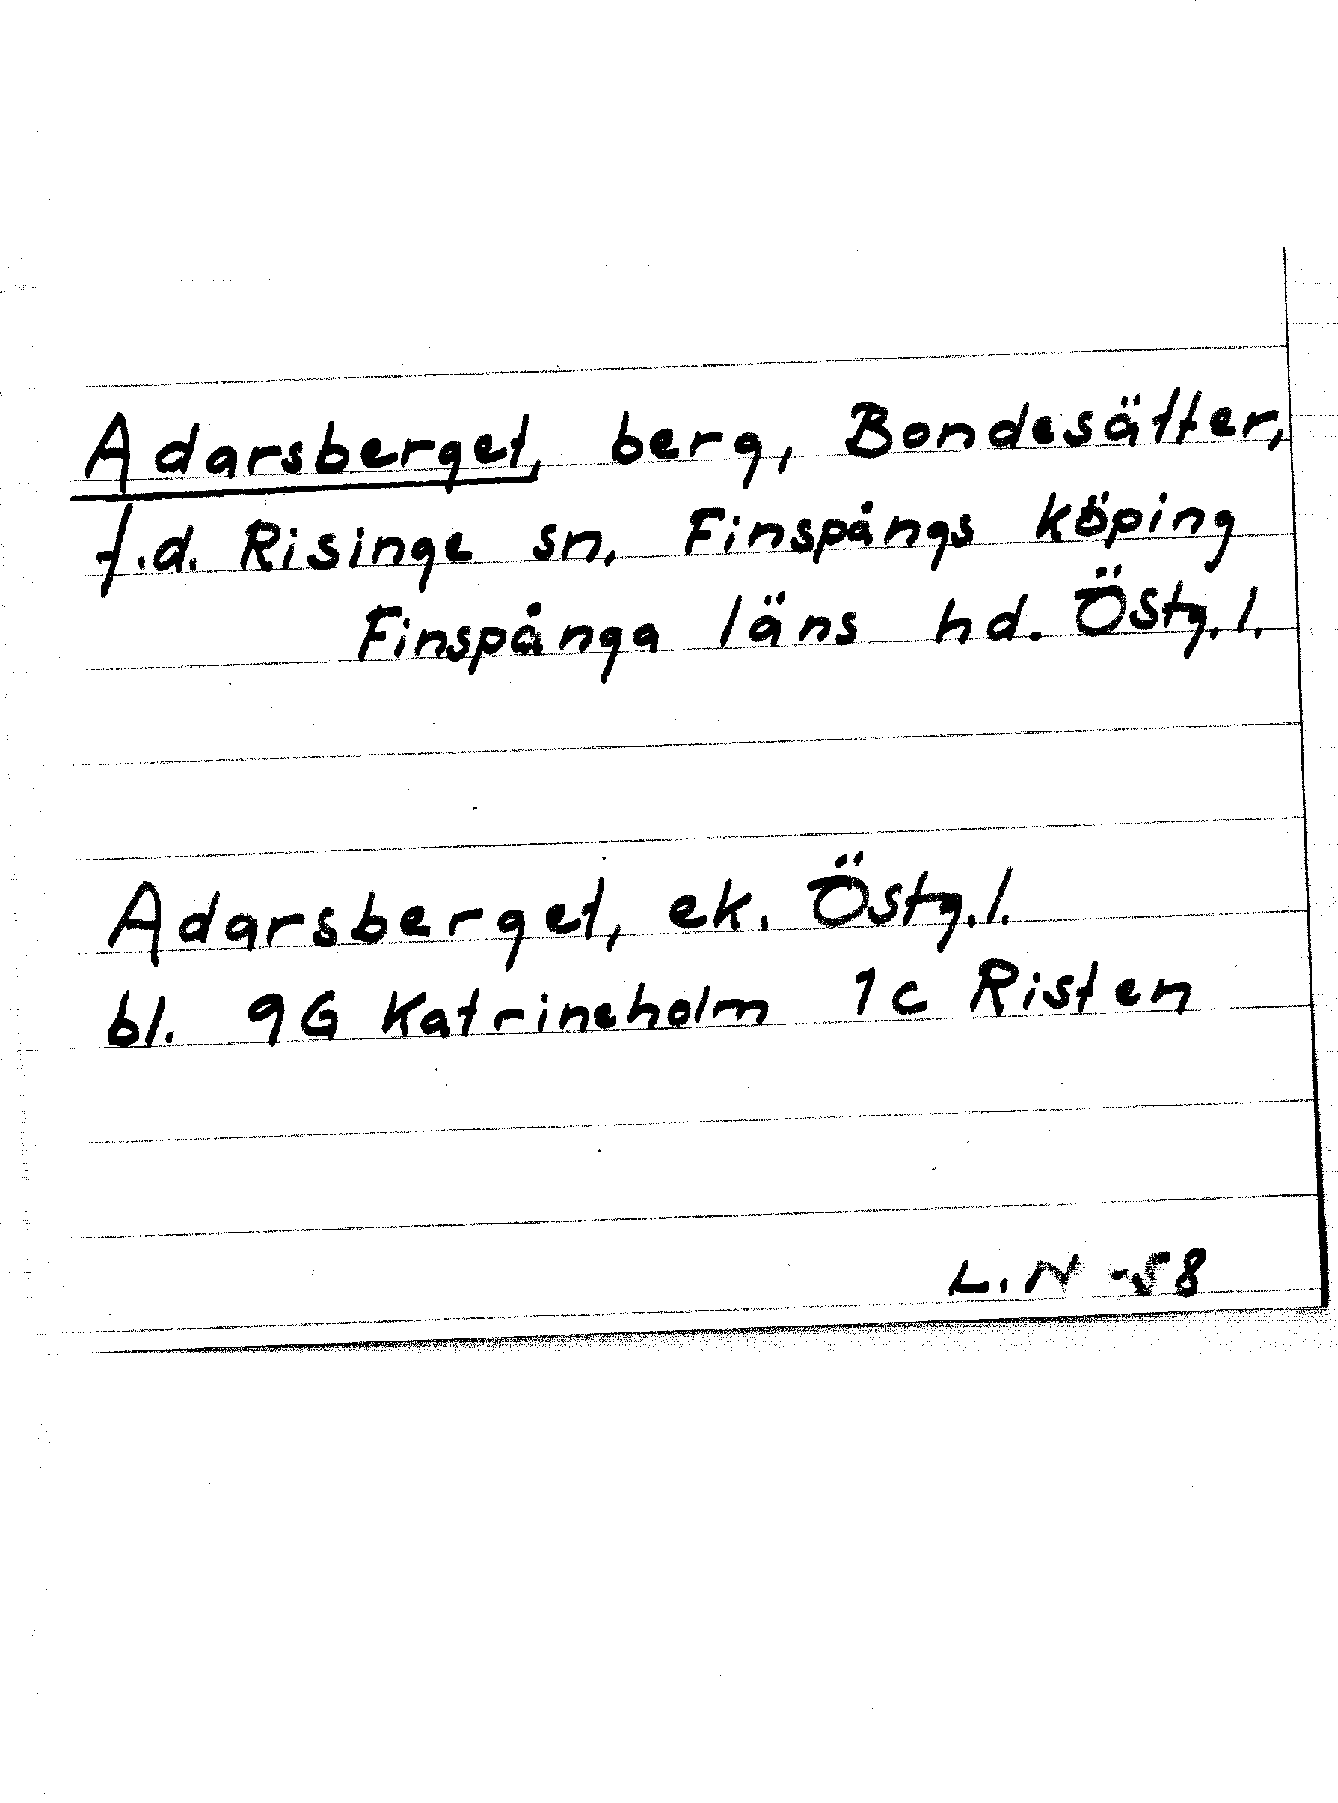 Adarsberget, berg, Bondesätter,
f.d. Risinge sn, Finspångs köping
Finspånga läns hd. Östg.l.
Adarsberget, ek. Östg.l.
bl. 9G Katrineholm 1c Risten
L.N -58